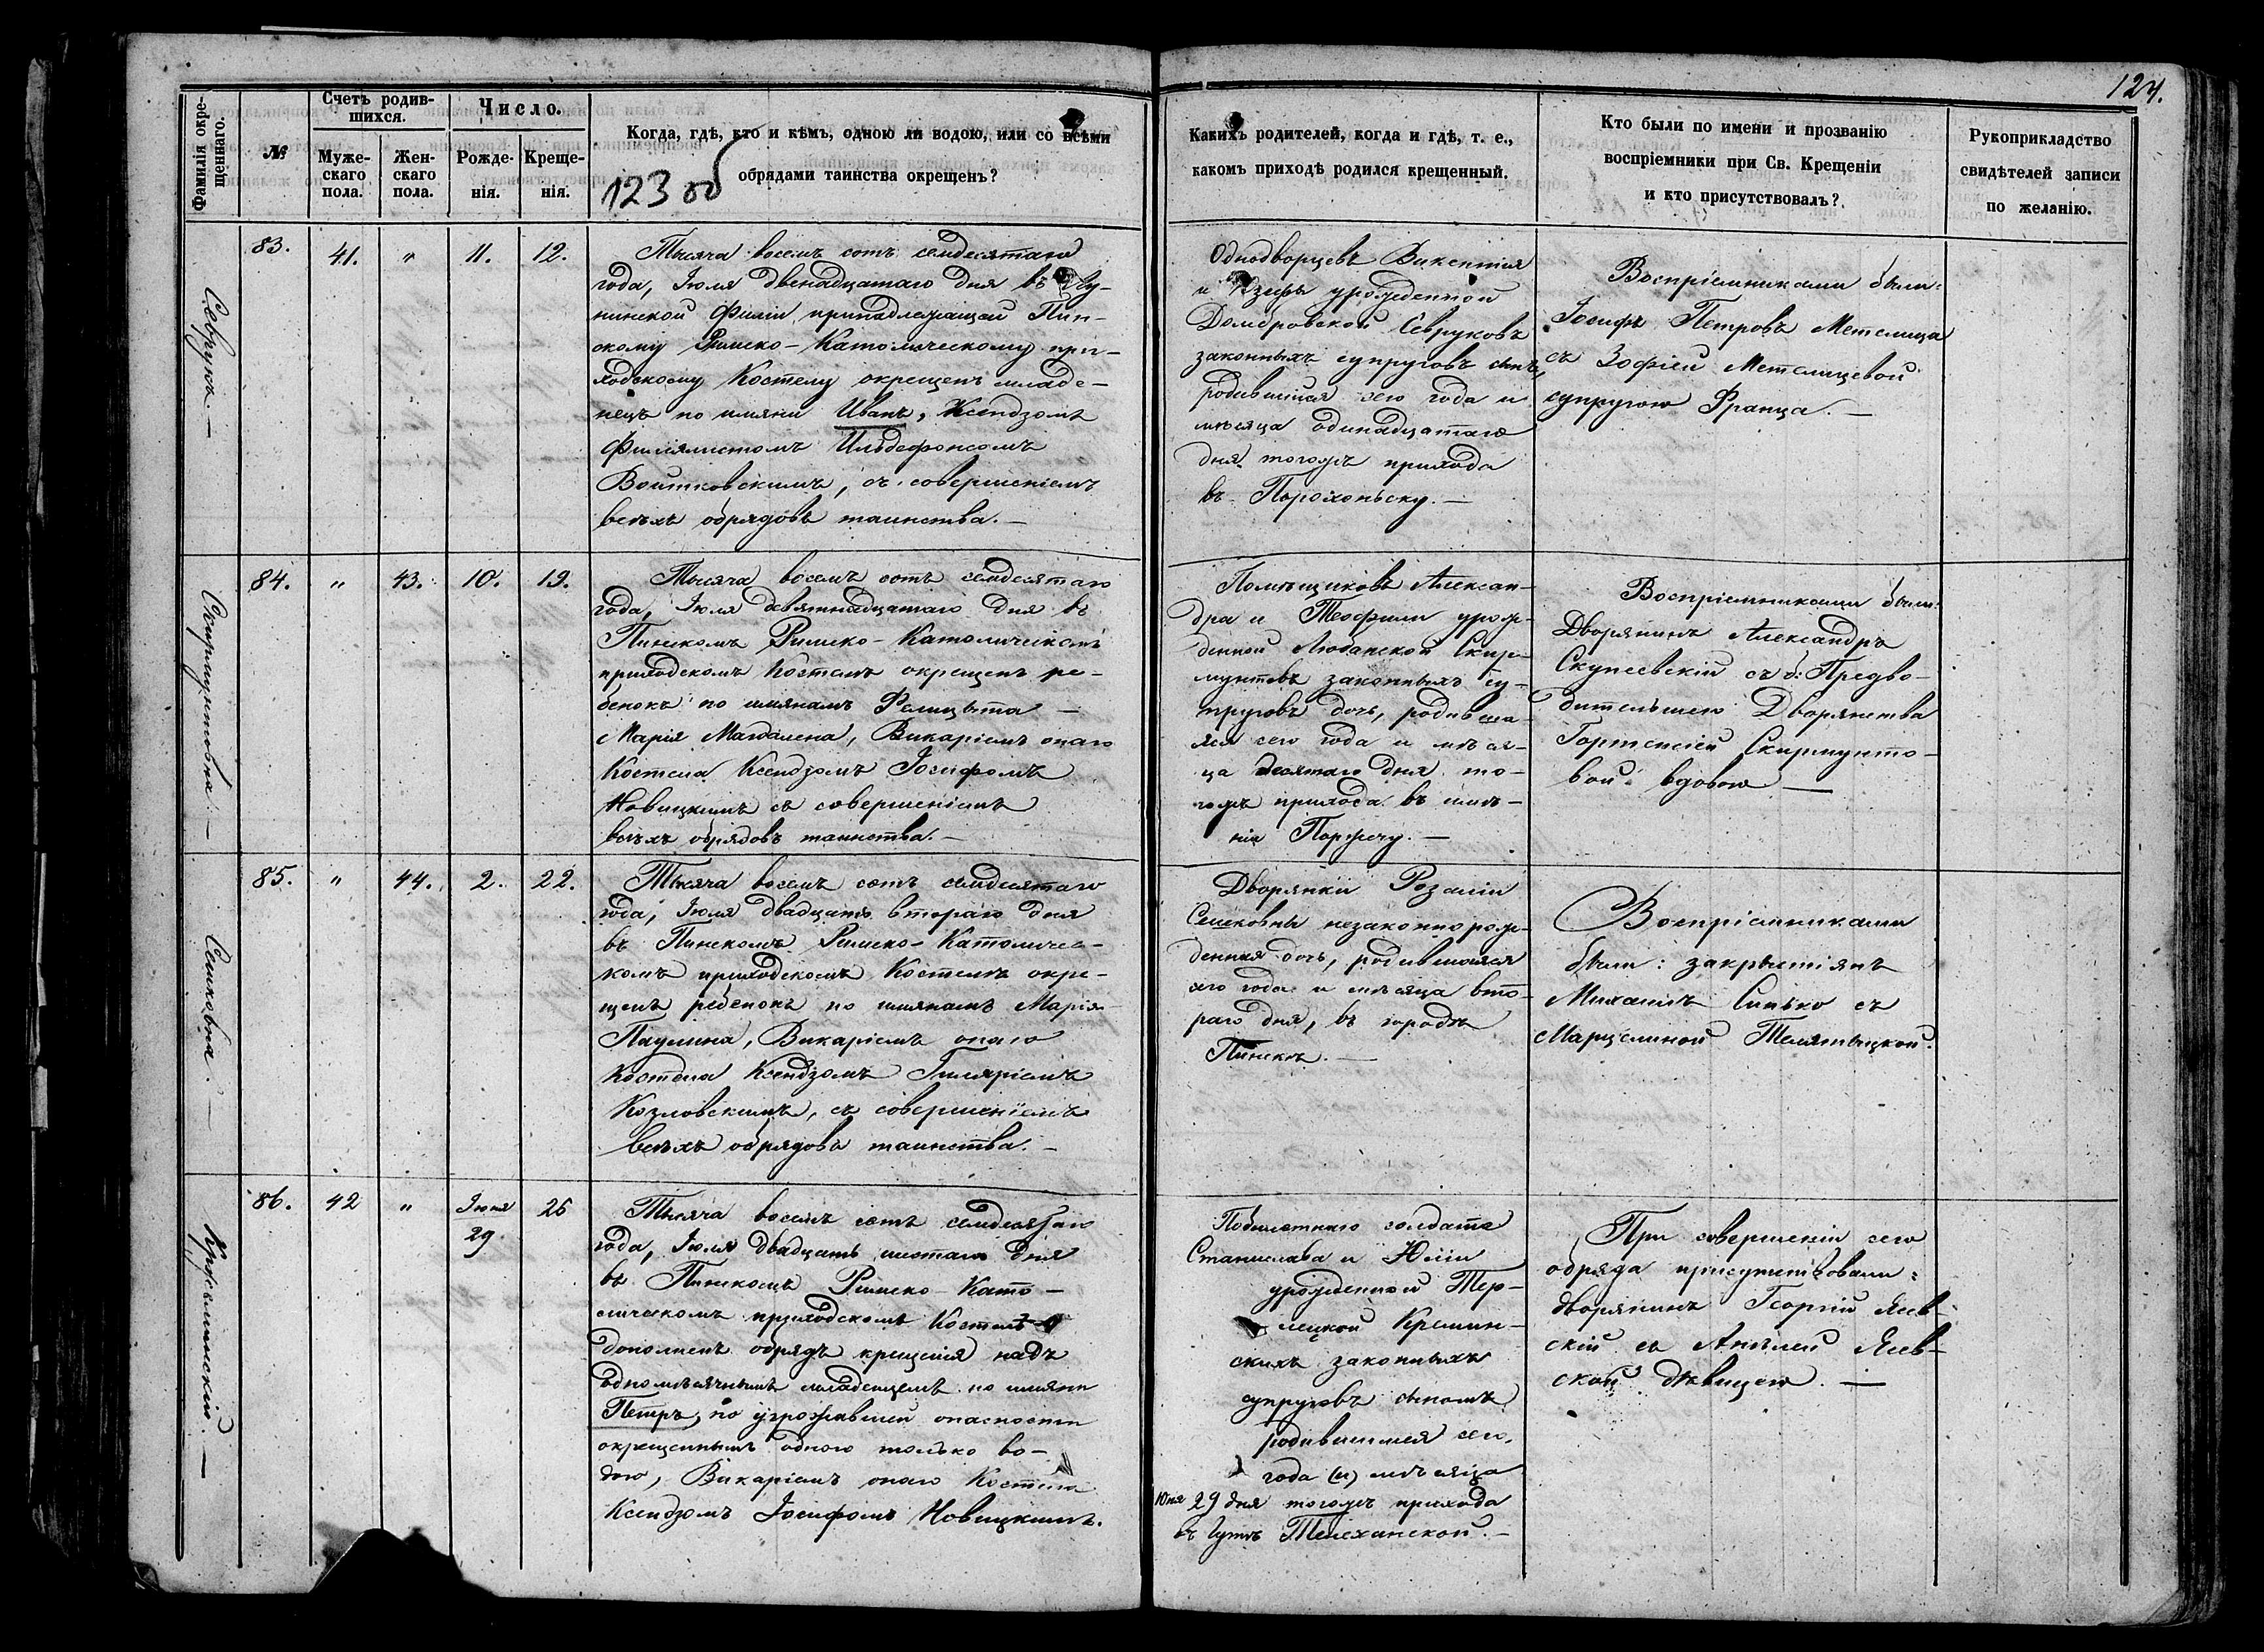 124.
Фамилія окре-
щеннаго.
№
Счетъ родив-
шихся.
Муже-
скаго
пола.
Жен-
скаго
пола.
Число.
Рожде-
нія.
Креще-
нія.
Когда, гдѣ, кто и кѣмъ, одною ли водою, или со всѣми
обрядами таинства окрещенъ?
12300
Какихъ родителей, когда и гдѣ, т. е.,
какомъ приходѣ родился крещенный.
Кто были по имени и прозванію
воспріемники при Св. Крещеніи
и кто присутствовалъ?
Рукоприкладство
свидѣтелей записи
по желанію.
Севрукъ. —
83.
41.
"
11.
12.
Тысяча восемъ сотъ семдесятаго
года, Іюля двенадцатаго дня въ Лу-
нинской Филіи принадлежащей Пин-
скому Римско-Католическому при-
ходскому Костелу окрещенъ младе-
нецъ по имяни Иванъ, Ксендзомъ
Филиялистомъ Ильдефонсомъ
Войтковскимъ, съ совершеніемъ
всѣхъ обрядовъ таинства. —
Однодворцевъ Викентія
и Юзефы урожденной
Домбровской Севруковъ
законныхъ супруговъ сынъ,
родившійся сего года и
мѣсяца одинадцатаго
дня тогожъ прихода
въ Порохоньску. —
Воспріемниками были:
Іосифъ Петровъ Метелица
съ Зофіей Метелицевой
супругою Франца. —
Скирмунтовна. —
84.
"
43.
10.
19.
Тысяча восемъ сотъ семдесятаго
года, Іюля девятнадцатаго дня въ
Пинскомъ Римско-Католическомъ
приходскомъ Костелѣ окрещенъ ре-
бенокъ по имянамъ Фелицыта —
Марія Магдалена, Викаріемъ онаго
Костела Ксендзомъ Іосифомъ
Новицкимъ съ совершеніемъ
всѣхъ обрядовъ таинства. —
Помѣщиковъ Алексан-
дра и Теофили урож-
денной Любанской Скир-
мунтовъ законныхъ су-
пруговъ дочь, родивша-
яся сего года и мѣся-
ца десятаго дня то-
гожъ прихода въ имѣ-
ніи Поржечу. —
Воспріемниками были:
Дворянинъ Александръ
Скупеевскій съ б: Предво-
дительшею Дворянства
Гортенсіей Скирмунто-
вой вдовою —
Семковна. —
85.
"
44.
2.
22.
Тысяча восемъ сотъ семдесятаго
года, Іюля двадцать втораго дня
въ Пинскомъ Римско-Католичес-
комъ приходскомъ Костелѣ окре-
щенъ ребенокъ по имянамъ Марія-
Паулина, Викаріемъ онаго
Костела Ксендзомъ Гиляріемъ
Козловскимъ, съ совершеніемъ
всѣхъ обрядовъ таинства. —
Дворянки Розаліи
Семковны незаконнорож-
денная дочь, родившаяся
сего года и мѣсяца вто-
раго дня, въ городѣ
Пинскѣ. —
Воспріемниками
были:
Михаилъ Синько съ
Марцелиной Телятыцкой.
Кржеминскій. —
86.
42
"
Іюня
29
26
Тысяча восемъ сотъ семдесятаго
года, Іюля двадцать шестаго дня
въ Пинскомъ Римско-Като-
лическомъ приходскомъ Костелѣ
дополненъ обрядъ крещенія надъ
одномѣсячнымъ младенцемъ по имяни
Петръ, по угрожавшей опасности
окрещеннымъ одною только во-
дою, Викаріемъ онаго Костела
Ксендзомъ Іосифомъ Новицкимъ.
Побилетнаго солдата
Станислава и Юліи
урожденной Тер-
лецкой Кремин-
скихъ законныхъ
супруговъ сыномъ
родившимся сего
года (и) мѣсяца
Юня 29 дня тогожъ прихода
въ Гутѣ Телеханской. —
При совершеніи сего
обряда присутствовали:
дворянинъ Георгій Яев-
скій съ Анѣлей Яев-
ской дѣвицею. —